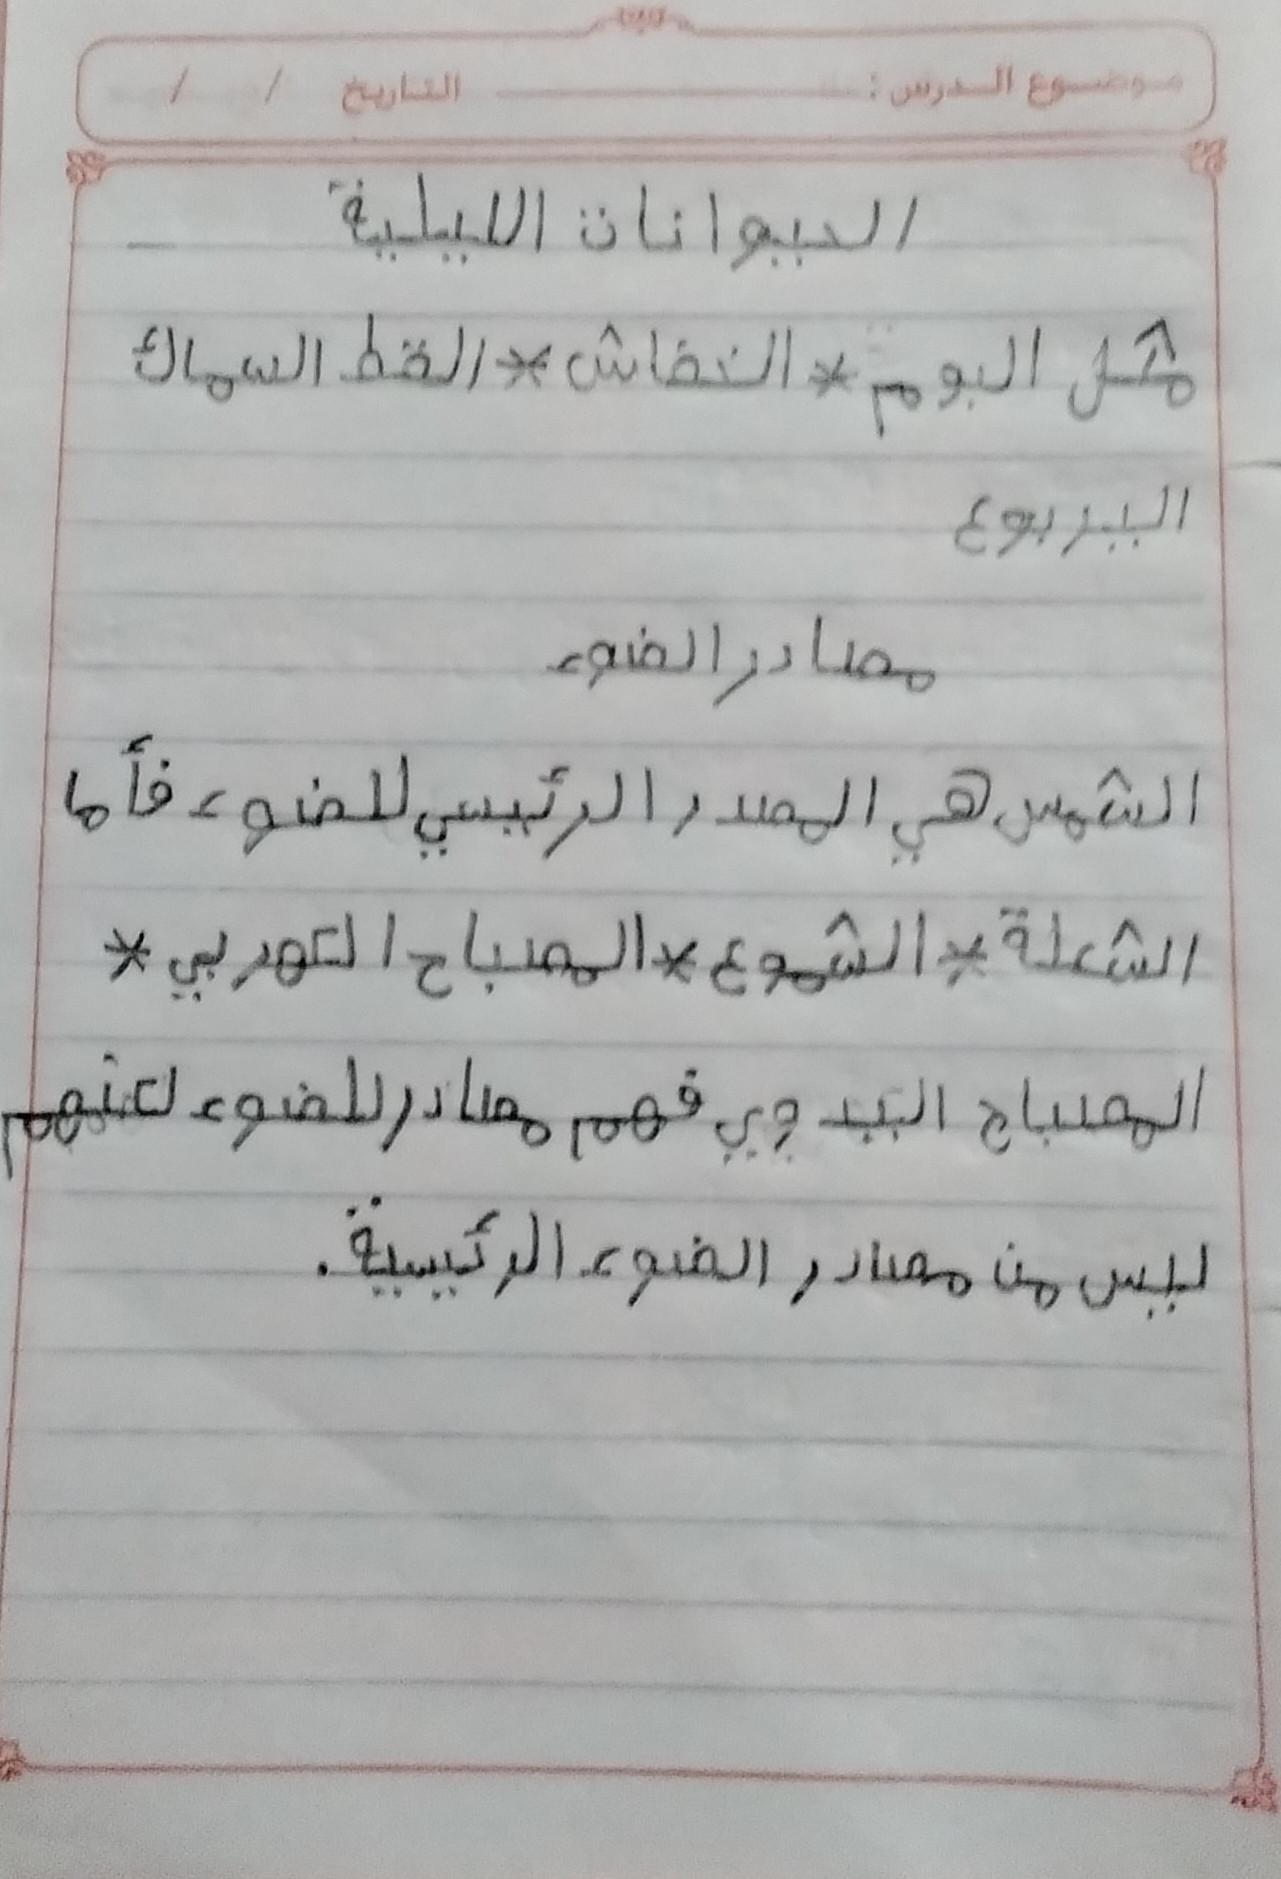 موضوع الدرس : التاريخ / /
الحيوانات الليلية
مثل البوم * الخفاش * القط السماك
اليربوع
مصادر الضوء
الشمس هي المصدر الرئيسي للضوء فأما
الشعلة * الشموع * المصباح الكهربي *
المصباح اليدوي فهم مصادر للضوء لكنهم
ليس من مصادر الضوء الرئيسية.